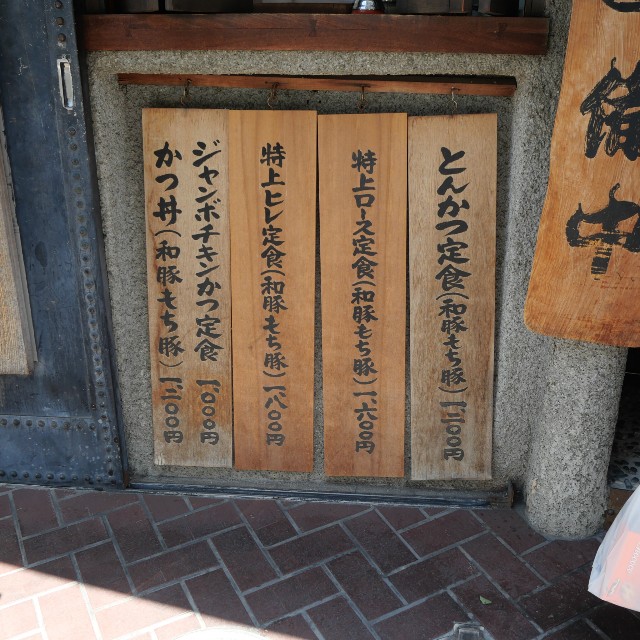 備中
とんかつ定食(和豚もち豚)一、二〇〇円
特上ロース定食(和豚もち豚)一、六〇〇円
特上ヒレ定食(和豚もち豚)一、八〇〇円
ジャンボチキンかつ定食 一、〇〇〇円
かつ丼(和豚もち豚)一、二〇〇円